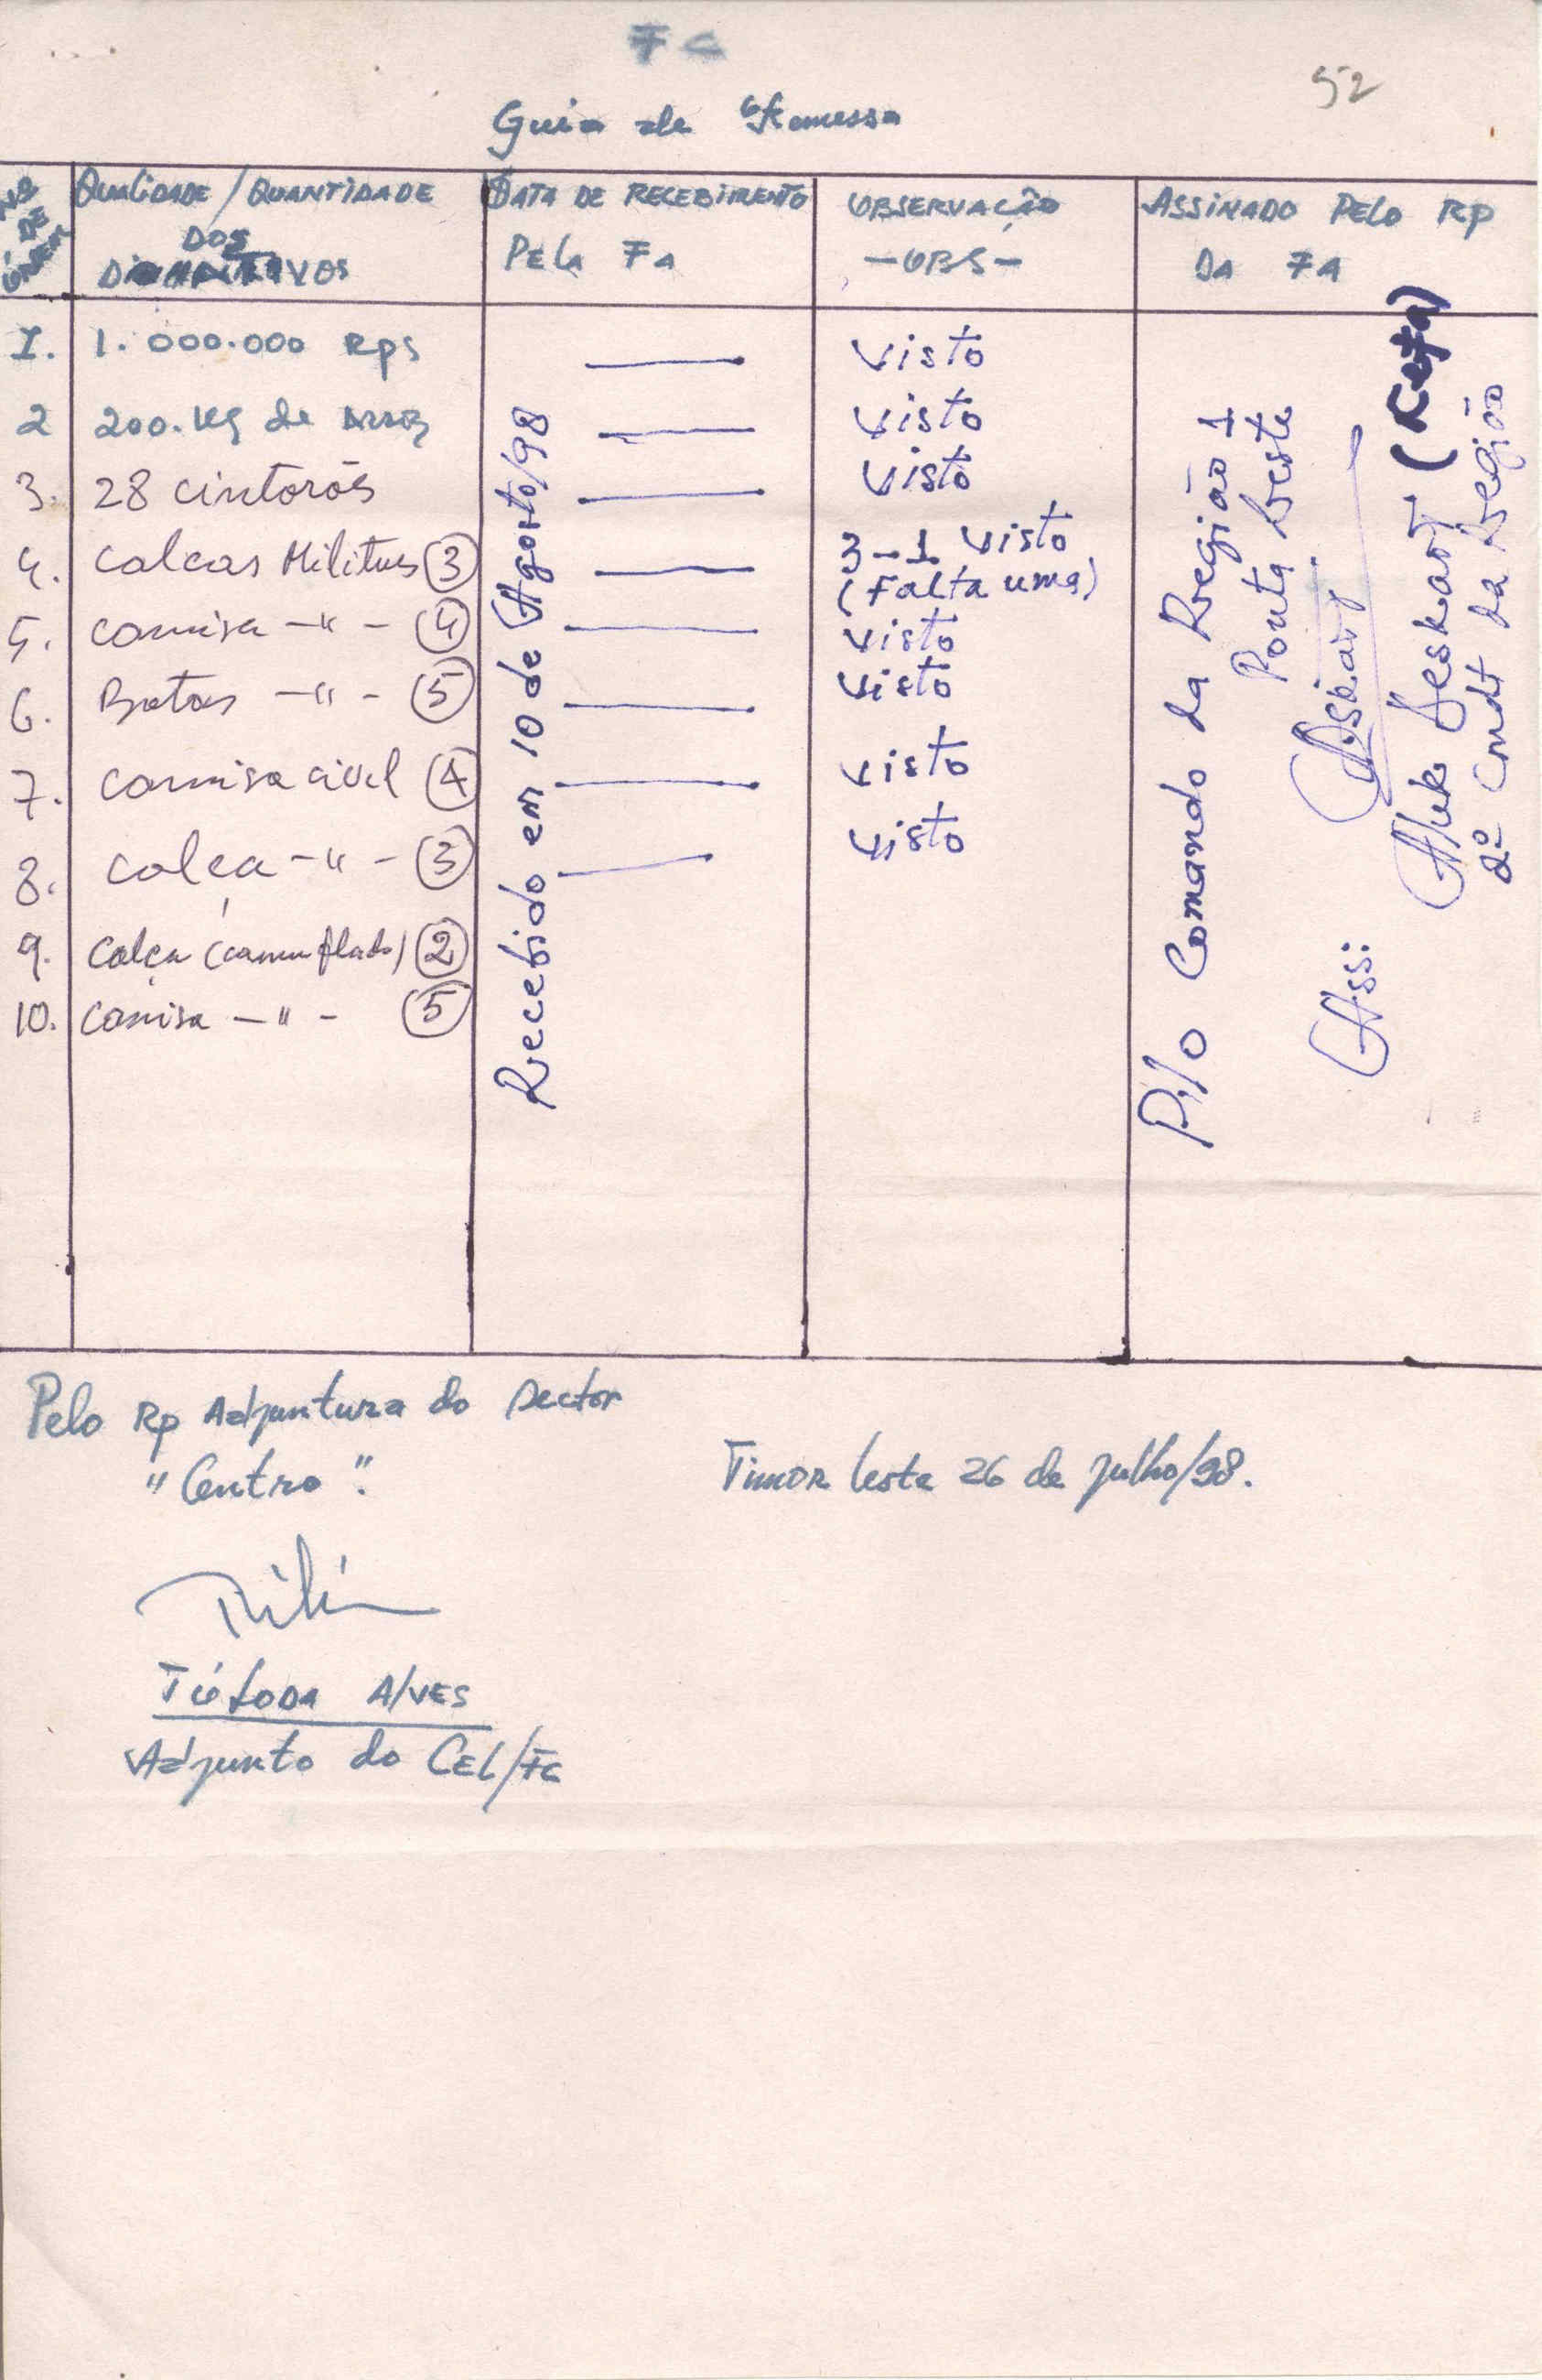 FC
52
Guia de Remessa
Nº DE ORDEM
QUALIDADE / QUANTIDADE
DOS
DATA DE RECEBIMENTO
PELA FA
OBSERVAÇÃO
-OBS-
ASSINADO PELO RP
DA FA
I. 1.000.000 Rps visto
2 200.Kg de Arroz visto
3. 28 cintorōs visto
4. calcas Militares 3 3-1 visto
(Falta uma)
5. camisa -"- 4 visto
6. Botas -"- 5 visto
7. camisa civil 4 visto
8. calça -"- 3 visto
9. calça (camuflado) 2
10. camisa -"- 5
Recebido em 10 de Agosto/98
P/o Comando da Região 1
Ponta Leste
Ass:
2º Cmdt da Região
Pelo Rp Adjuntura do Sector
"Centro".
Timor leste 26 de Julho/98.
ALVES
Adjunto do CEL/FC